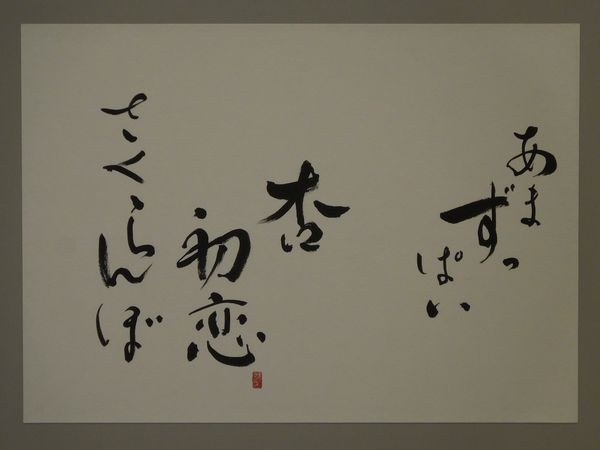 あまずっぱい
杏
初恋
さくらんぼ